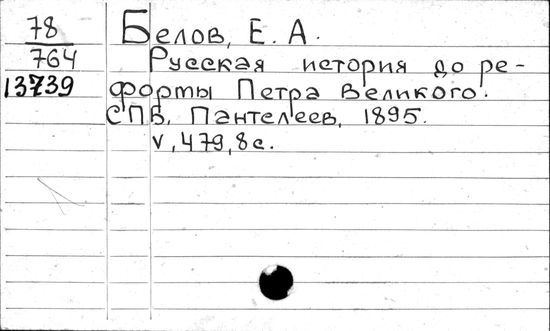 78
764
13739
Белов, Е. А.
Русская история до ре-
формы Петра Великого.
СПБ, Пантелеев, 1895.
V, 479, 8 с.